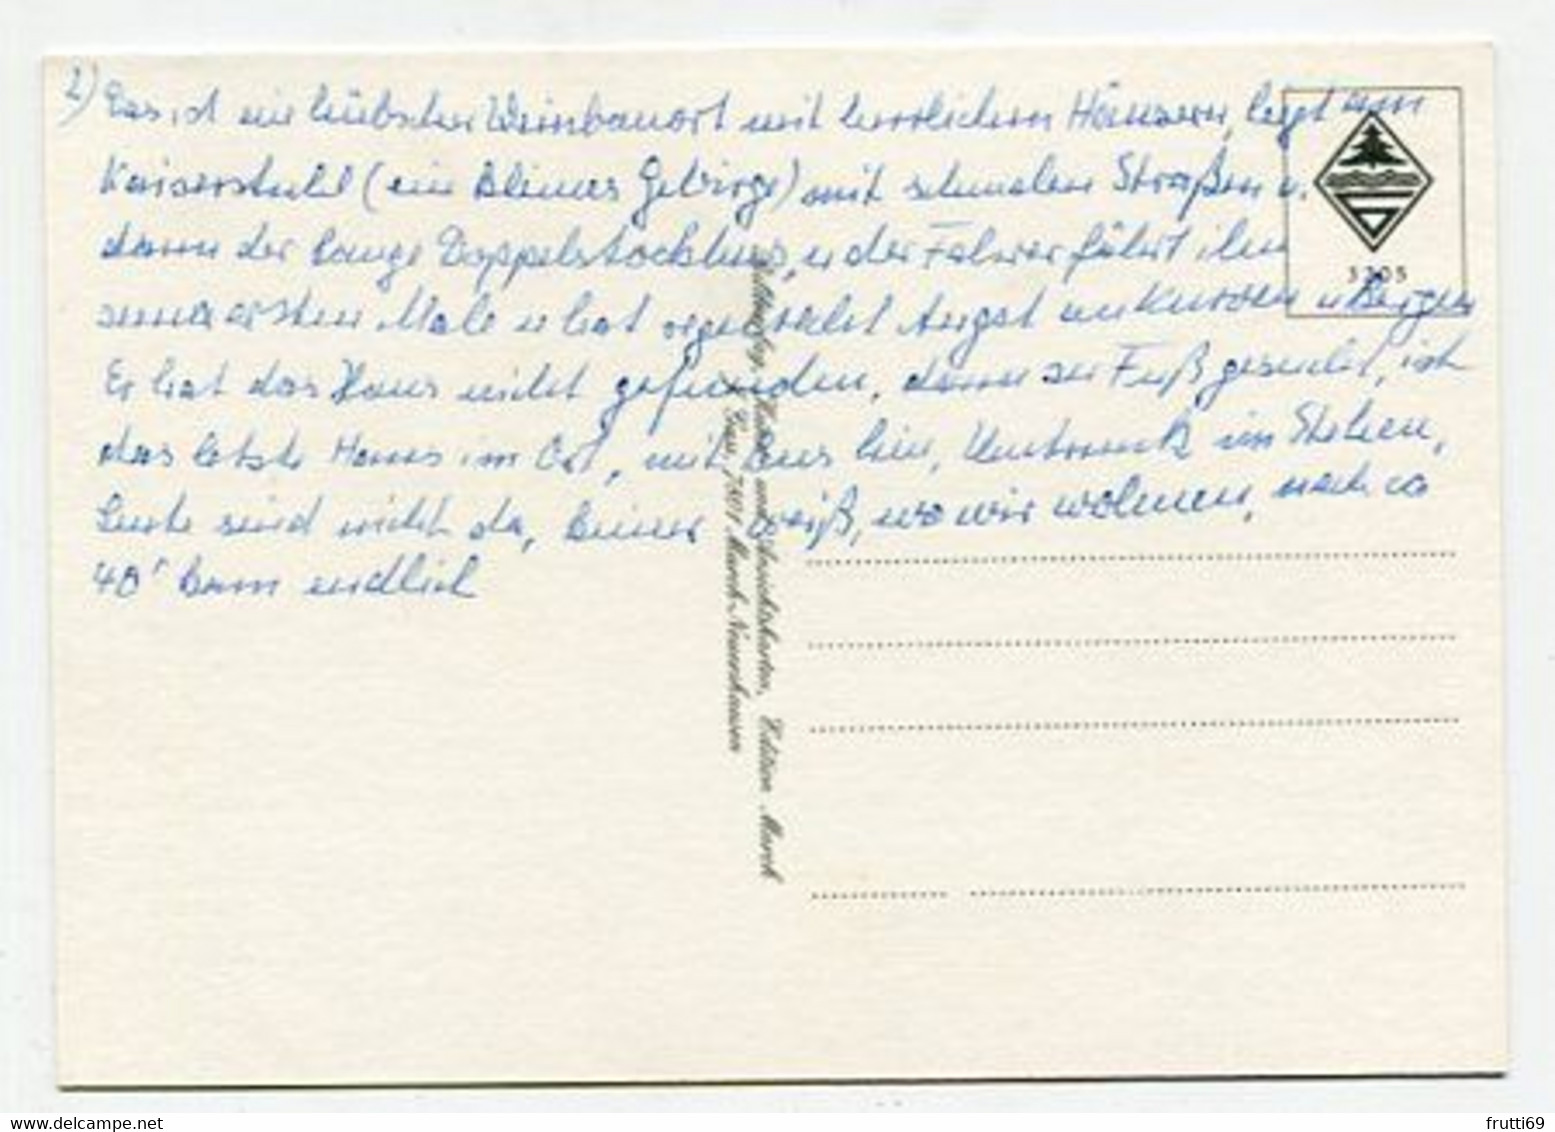 2) Das ist ein hübscher Weinbauort mit herrlichem Häusern, liegt am
Kaiserstuhl (ein kleines Gebirge) mit schmalen Straßen u.
dann der lange Doppelstockbus, u der Fahrer fährt ihn
zum ersten Male u hat regelrecht Angst in Kurven u Bergen
Er hat das Haus nicht gefunden, dann zu Fuß gesucht, ist
das letzte Haus im Ort, mit Bus hin, Umtrunk im Stehen,
Leute sind nicht da, keiner weiß, wo wir wohnen, nach ca
40' kam endlich
3205
Ansichtskarten, Edition March
7801 March-Neuershausen
frutti69